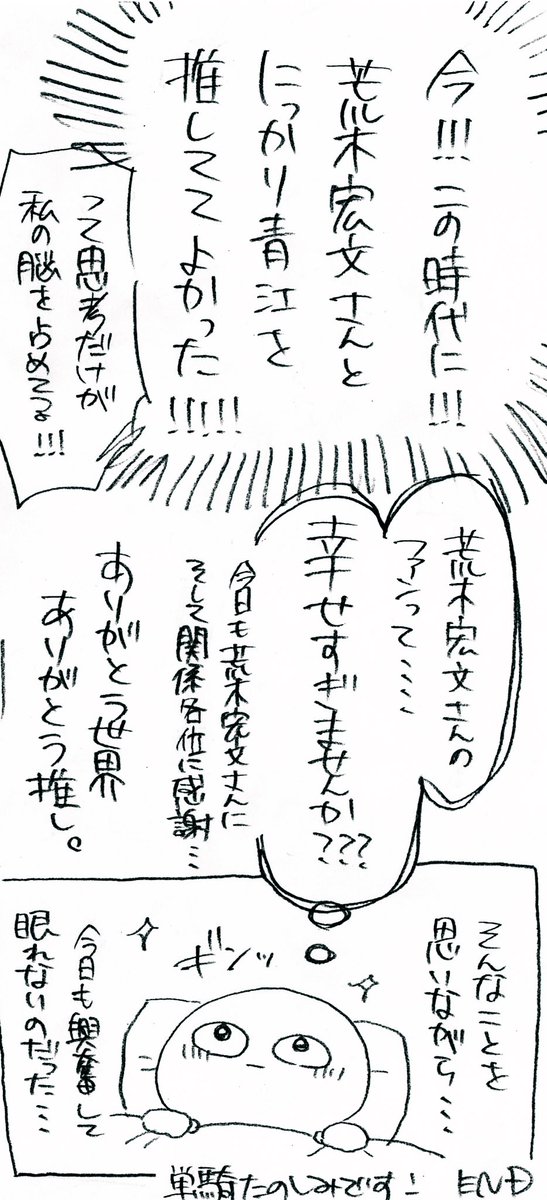 今!!!この時代に!!!
荒木宏文さんと
にっかり青江を
推しててよかった!!!!!
って思考だけが
私の脳を占めてる!!!
荒木宏文さんの
ファンって・・・・
幸せすぎませんか???
今日も荒木宏文さんに
そして関係各位に感謝…
ありがとう世界
ありがとう推し。
そんなことを
思いながら・・・・
ギンッ
今日も興奮して
眠れないのだった・・・
単騎たのしみです!
END